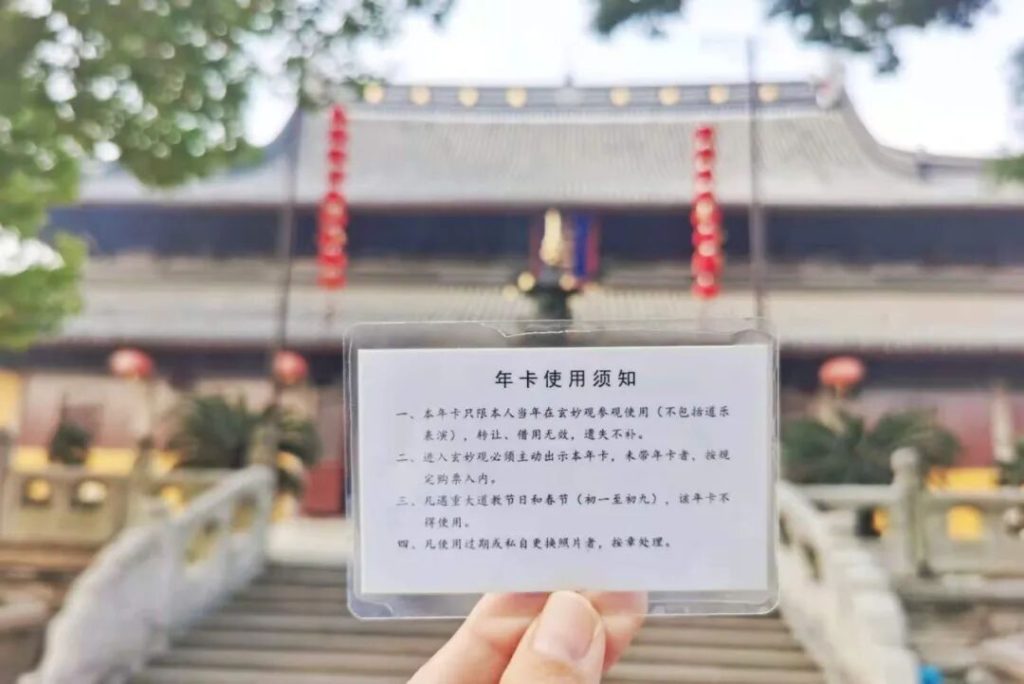 年卡使用须知
一、本年卡只限本人当年在玄妙观参观使用（不包括道乐
表演），转让、借用无效，遗失不补。
二、进入玄妙观必须主动出示本年卡，未带年卡者，按规
定购票入内。
三、凡遇重大道教节日和春节（初一至初九），该年卡不
得使用。
四、凡使用过期或私自更换照片者，按章处理。